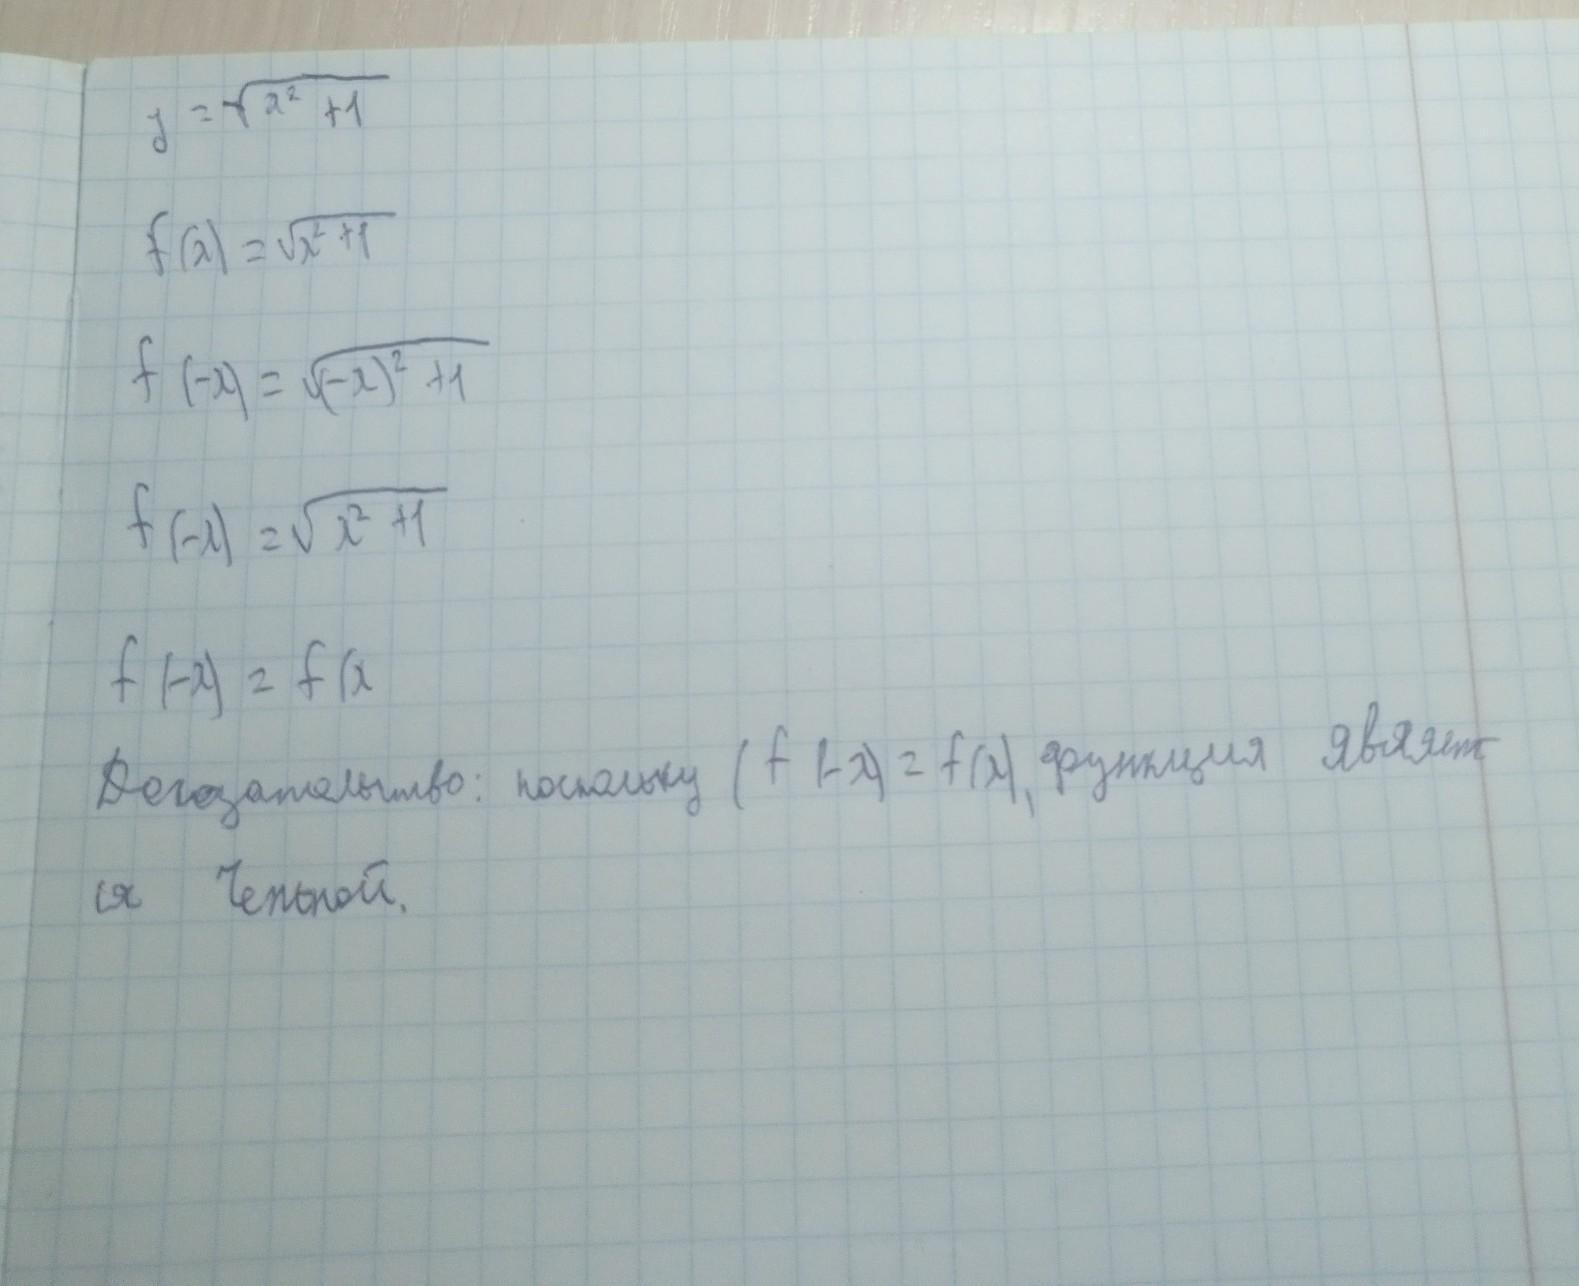 y = √x² + 1
f(x) = √x² + 1
f(-x) = √(-x)² + 1
f(-x) = √x² + 1
f(-x) = f(x
Доказательство: поскольку (f(-x) = f(x), функция являет
ся Четной.